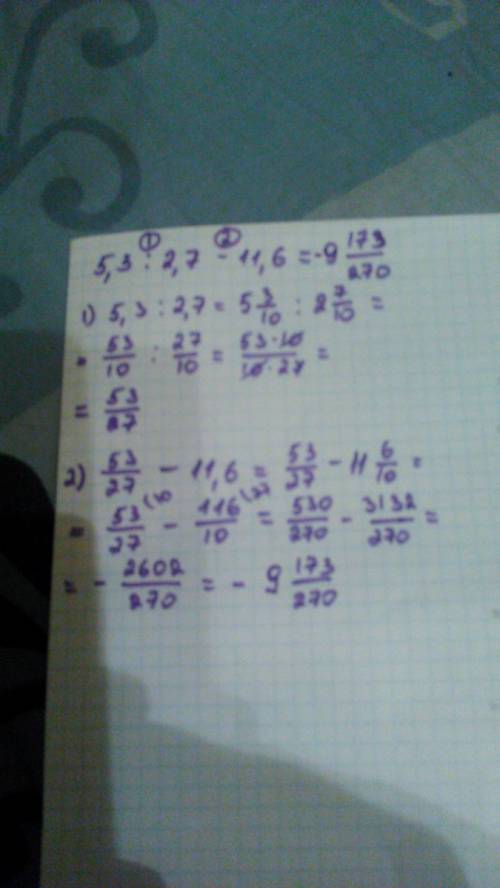 ① ②
5,3 : 2,7 - 11,6 = -9 173/270
1) 5,3 : 2,7 = 5 3/10 : 2 7/10 =
= 53/10 : 27/10 = 53·10/10·27 =
= 53/27
2) 53/27 - 11,6 = 53/27 - 11 6/10 =
= 53/27 (10 - 116/10 (27 = 530/270 - 3132/270 =
= - 2602/270 = - 9 173/270